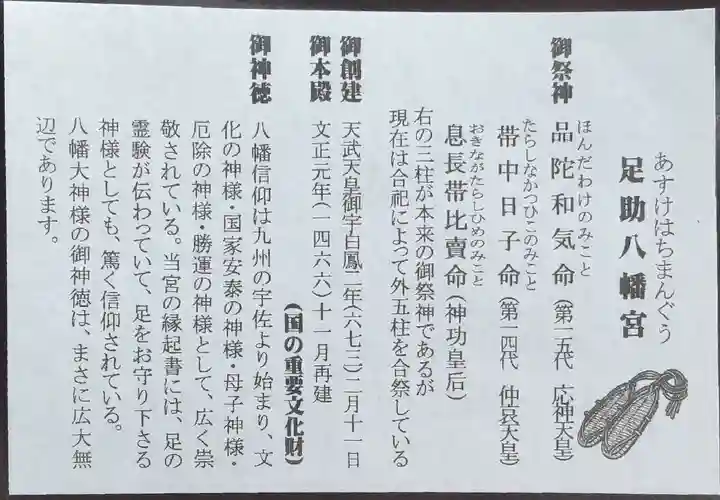 あすけはちまんぐう
足助八幡宮
御祭神
ほんだわけのみこと
品陀和気命(第一五代 応神天皇)
たらしなかつひこのみこと
帯中日子命(第一四代 仲哀天皇)
おきながたらしひめのみこと
息長帯比賣命(神功皇后)
右の三柱が本来の御祭神であるが
現在は合祀によって外五柱を合祭している
御創建 天武天皇御宇白鳳二年(六七三)二月十一日
御本殿 文正元年(一四六六)十一月再建
(国の重要文化財)
御神徳 八幡信仰は九州の宇佐より始まり、文
化の神様・国家安泰の神様・母子神様・
厄除の神様・勝運の神様として、広く崇
敬されている。当宮の縁起書には、足の
霊験が伝わっていて、足をお守り下さる
神様としても、篤く信仰されている。
八幡大神様の御神徳は、まさに広大無
辺であります。